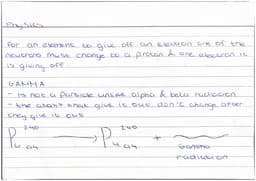 Physics
For an element to give off an electron one of the
neutrons must change to a proton & one electron it
is giving off
GAMMA
- is not a particle unlike alpha & beta radiation
- the atoms that give it out don't change after
they give it out
Pu 240 94 → Pu 240 94 + Gamma
radiation